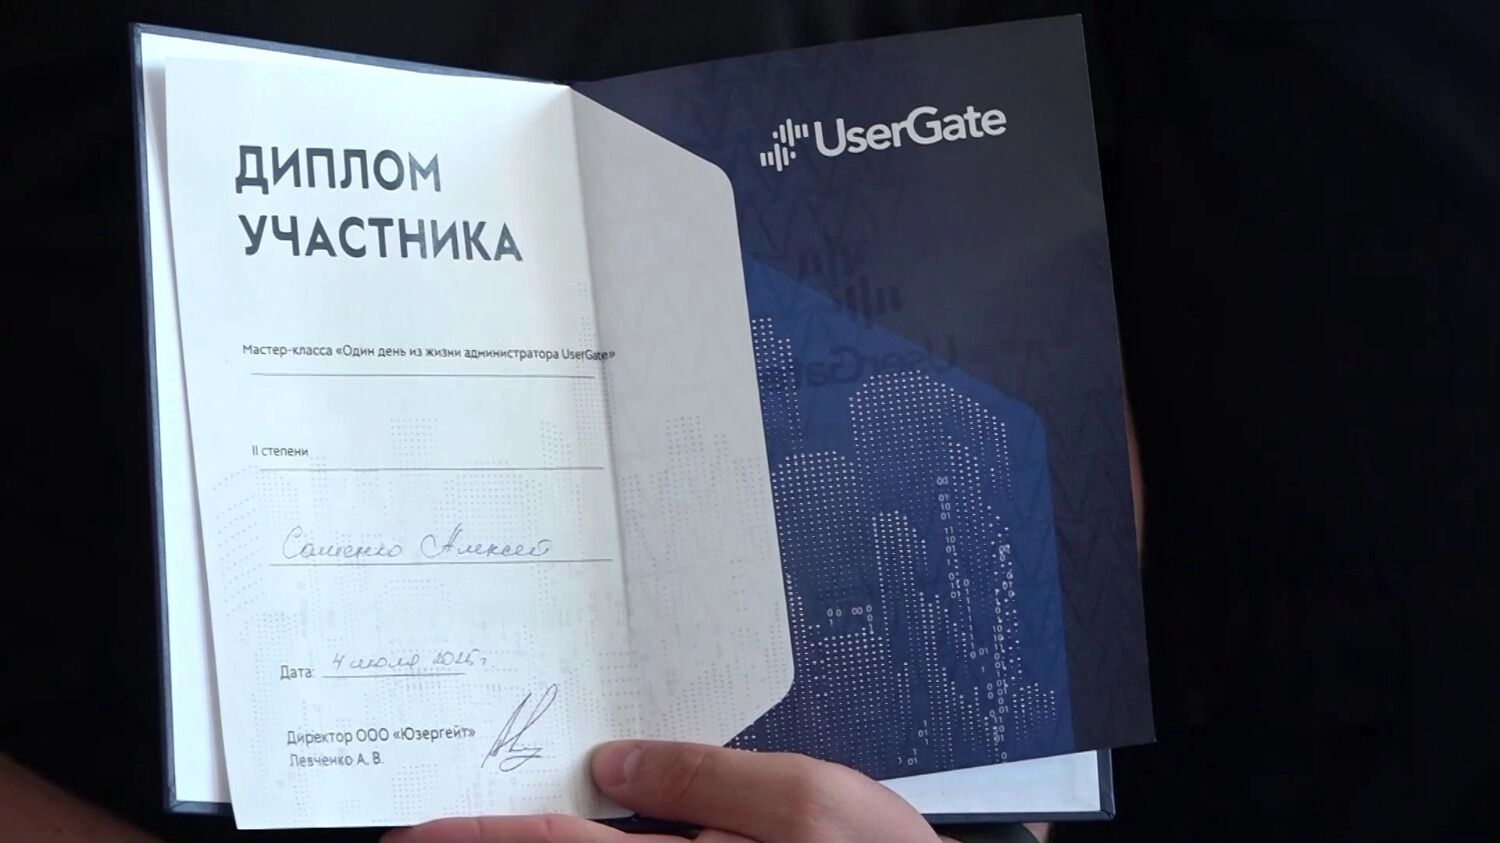 ДИПЛОМ
УЧАСТНИКА
Мастер-класса «Один день из жизни администратора UserGate»
II степени
Сашенко Алексей
Дата: 4 июля 2025 г.
Директор ООО «Юзергейт»
Левченко А. В.
UserGate